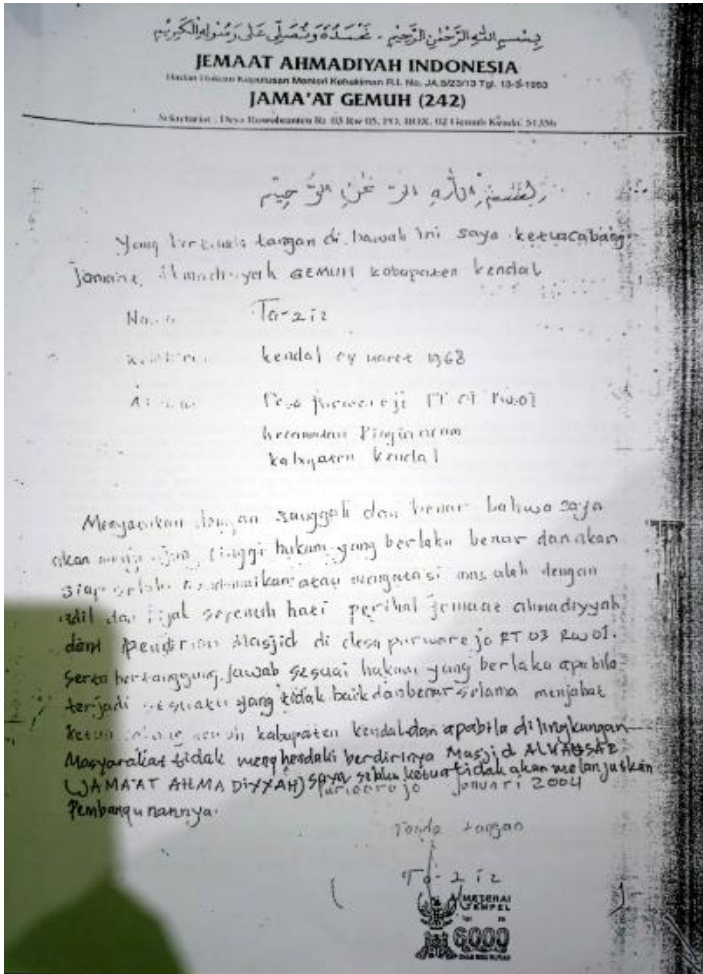 بِسْمِ اللهِ الرَّحْمٰنِ الرَّحِيْمِ - نَحْمَدُهُ وَنُصَلِّى عَلٰى رَسُوْلِهِ الْكَرِيْمِ
JEMAAT AHMADIYAH INDONESIA
Badan Hukum Keputusan Menteri Kehakiman R.I. No. JA.5/23/13 Tgl. 13-3-1953
JAMA'AT GEMUH (242)
Sekretariat : Desa Rt. 03 Rw 05, PO. BOX. 02 Gemuh Kendal 51356
Yang bertanda tangan di bawah ini saya ketua cabang
Jamaat Ahmadiyah GEMUH kabupaten kendal
Nama Ta-ziz
kendal 04 maret 1968
Desa purworejo RT 01 Rw.01
kecamatan Ringinarum
kabupaten kendal
Menyatakan dengan sungguh dan benar bahwa saya
akan tinggi hukum yang berlaku benar dan akan
siap selalu atau mengatasi masalah dengan
adil dan sepenuh hati perihal jemaat ahmadiyyah
dam pendirian Masjid di desa purworejo RT 03 RW 01.
Serta bertanggung jawab sesuai hukum yang berlaku apabila
terjadi sesuatu yang tidak baik dan benar selama menjabat
ketua kabupaten kendal dan apabila di lingkungan
Masyarakat tidak menghendaki berdirinya Masjid
(JAMA'AT AHMADIYYAH) saya selaku ketua tidak akan melanjutkan
purworejo Januari 2004
Pembangunannya.
Tanda tangan
Ta-ziz
METERAI
TEMPEL
6000